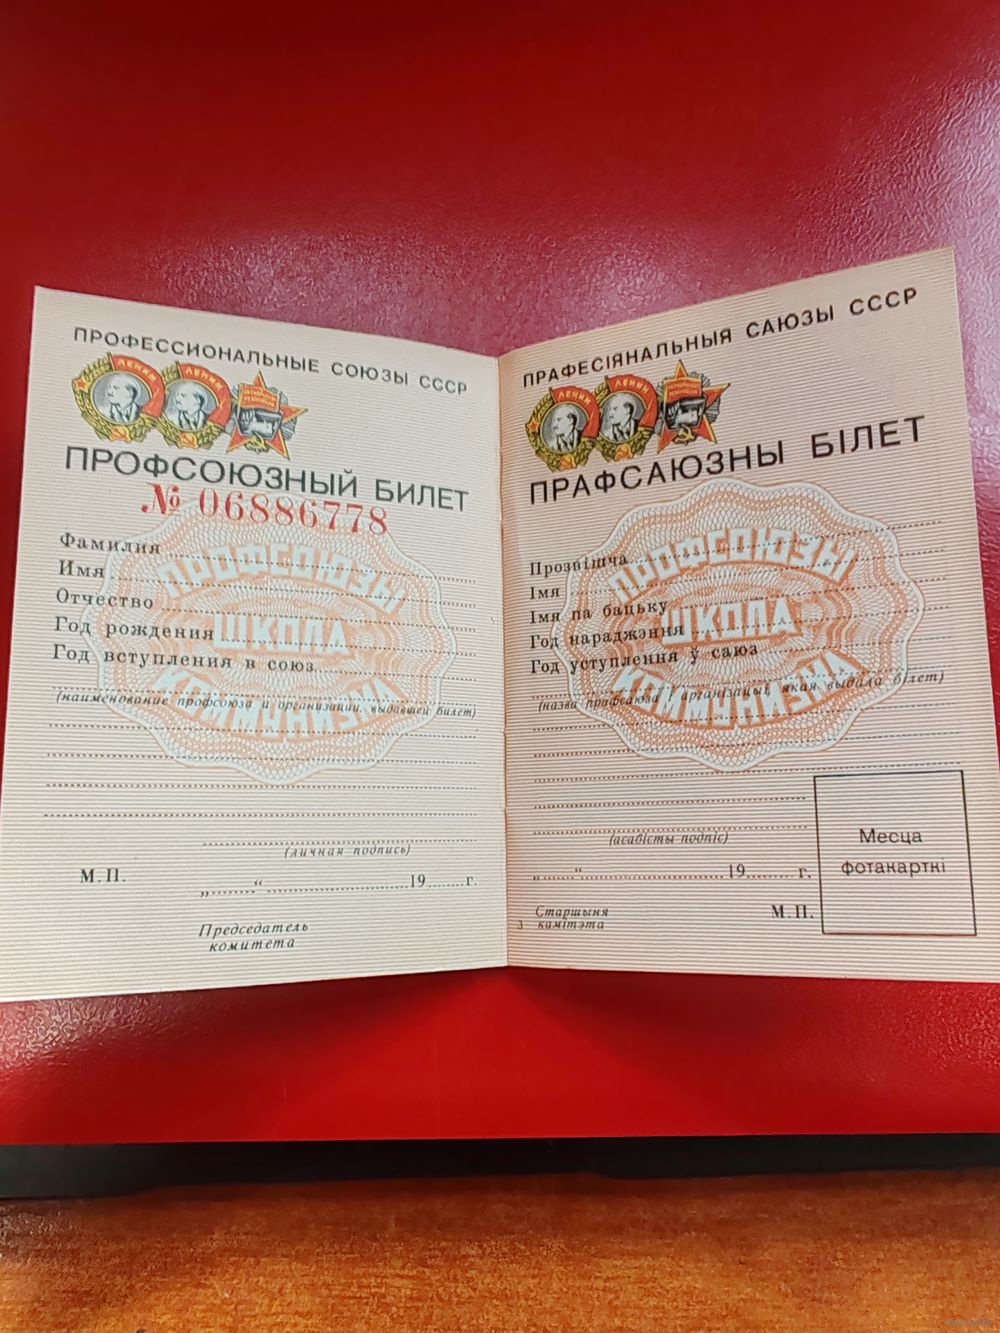 ПРОФЕССИОНАЛЬНЫЕ СОЮЗЫ СССР
ЛЕНИН ЛЕНИН
ПРОФСОЮЗНЫЙ БИЛЕТ
№ 06886778
Фамилия
Имя
Отчество
Год рождения
Год вступления в союз
(наименование профсоюза и организации, выдавшей билет)
ПРОФСОЮЗЫ
ШКОЛА
КОММУНИЗМА
(личная подпись)
М.П. „........“ ........ 19........г.
Председатель
комитета
ПРАФЕСІЯНАЛЬНЫЯ САЮЗЫ СССР
ЛЕНИН ЛЕНИН
ПРАФСАЮЗНЫ БІЛЕТ
Прозвішча
Імя
Імя па бацьку
Год нараджэння
Год уступлення ў саюз
(назва прафсаюза і арганізацыі, якая выдала білет)
ПРОФСОЮЗЫ
ШКОЛА
КОММУНИЗМА
(асабісты подпіс)
„........“ ........ 19........ г.
Месца
фотакарткі
Старшыня
камітэта
М.П.
3